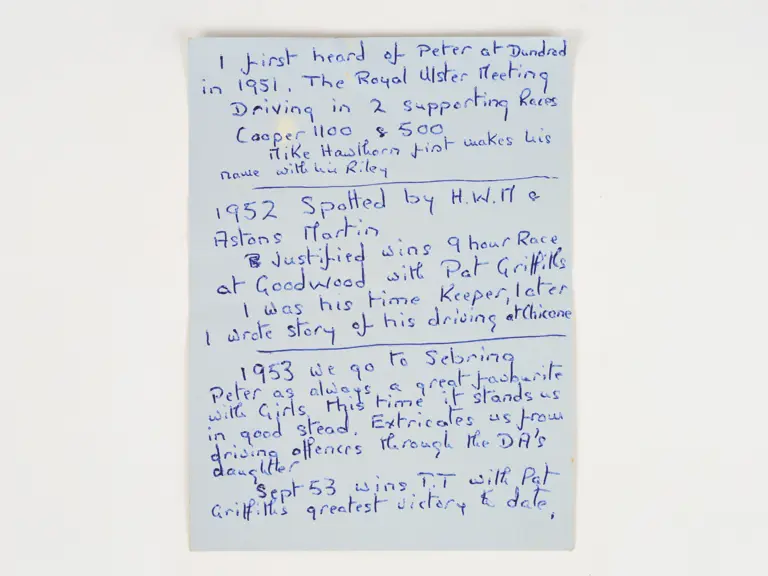 I first heard of Peter at Dundrod
in 1951. The Royal Ulster Meeting
Driving in 2 supporting Races
Cooper 1100 & 500
Mike Hawthorn first makes his
name with his Riley
1952 Spotted by H.W.M &
Astons Martin
Justified wins 9 hour Race
at Goodwood with Pat Griffiths
I was his time Keeper, later
I wrote story of his driving at Chicane
1953 we go to Sebring
Peter as always a great favourite
with Girls, this time it stands us
in good stead. Extricates us from
driving offences through the DA's
daughter
Sept 53 wins T.T with Pat
Griffiths greatest victory to date.